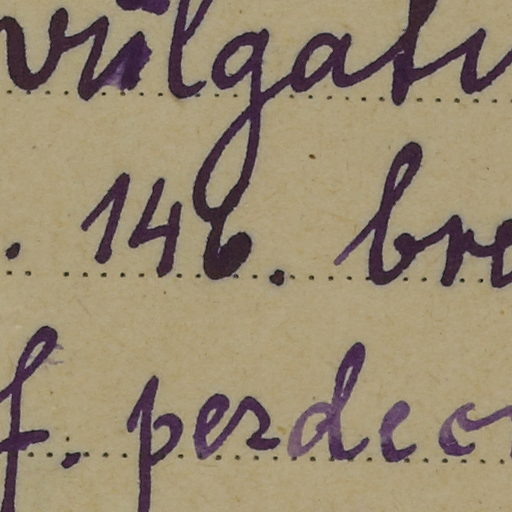 vulgatu
. 146. bre
f. perdeco